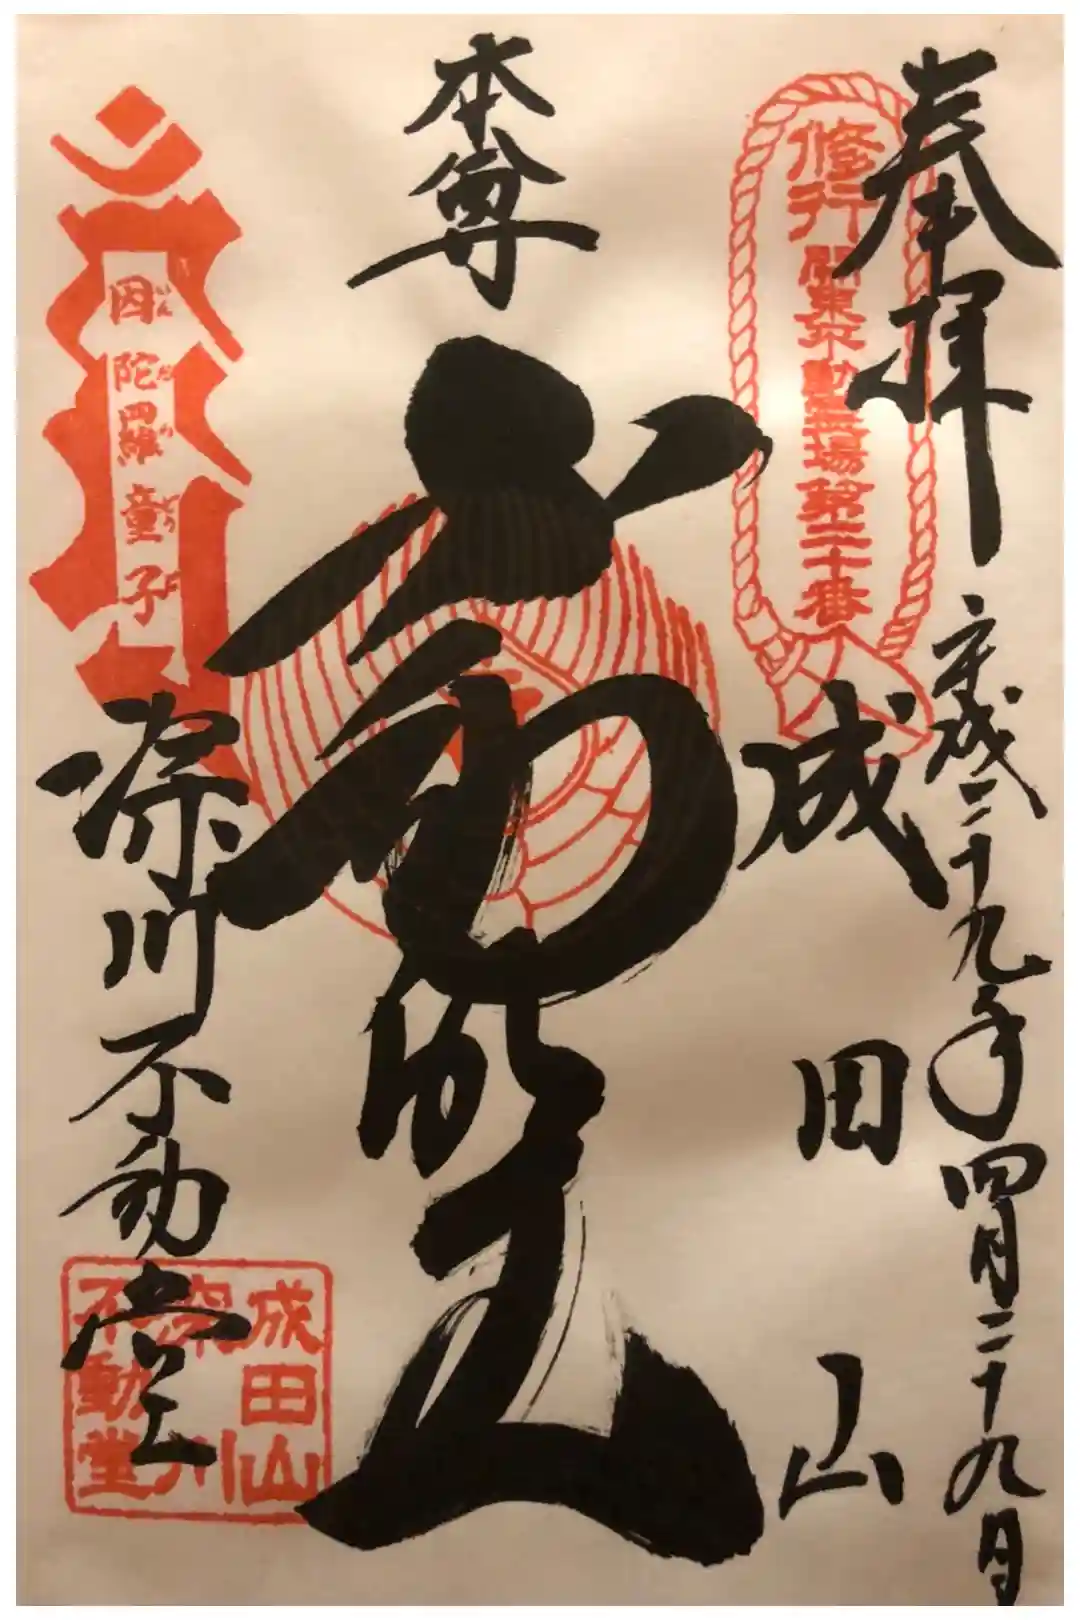 奉拝
平成二十九年四月二十九日
修行 関東不動霊場第二十番
成田山
本尊
不動明王
因陀羅童子
いん だ ら どう じ
深川不動堂
成田山
深川
不動堂